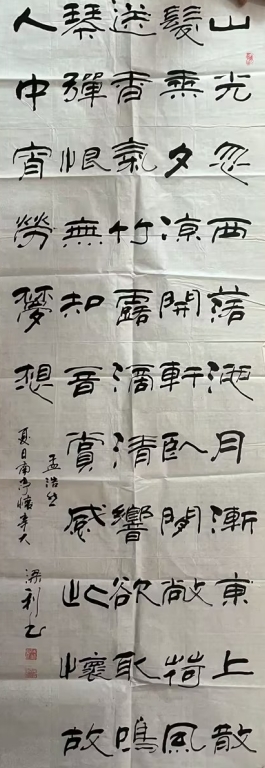 山光忽西落池月漸東上散
髮乘夕涼開軒臥閑敞荷風
送香氣竹露滴清響欲取鳴
琴彈恨無知音賞感此懷故
人中宵勞夢想
孟浩然
夏日南亭懷辛大
梁利書